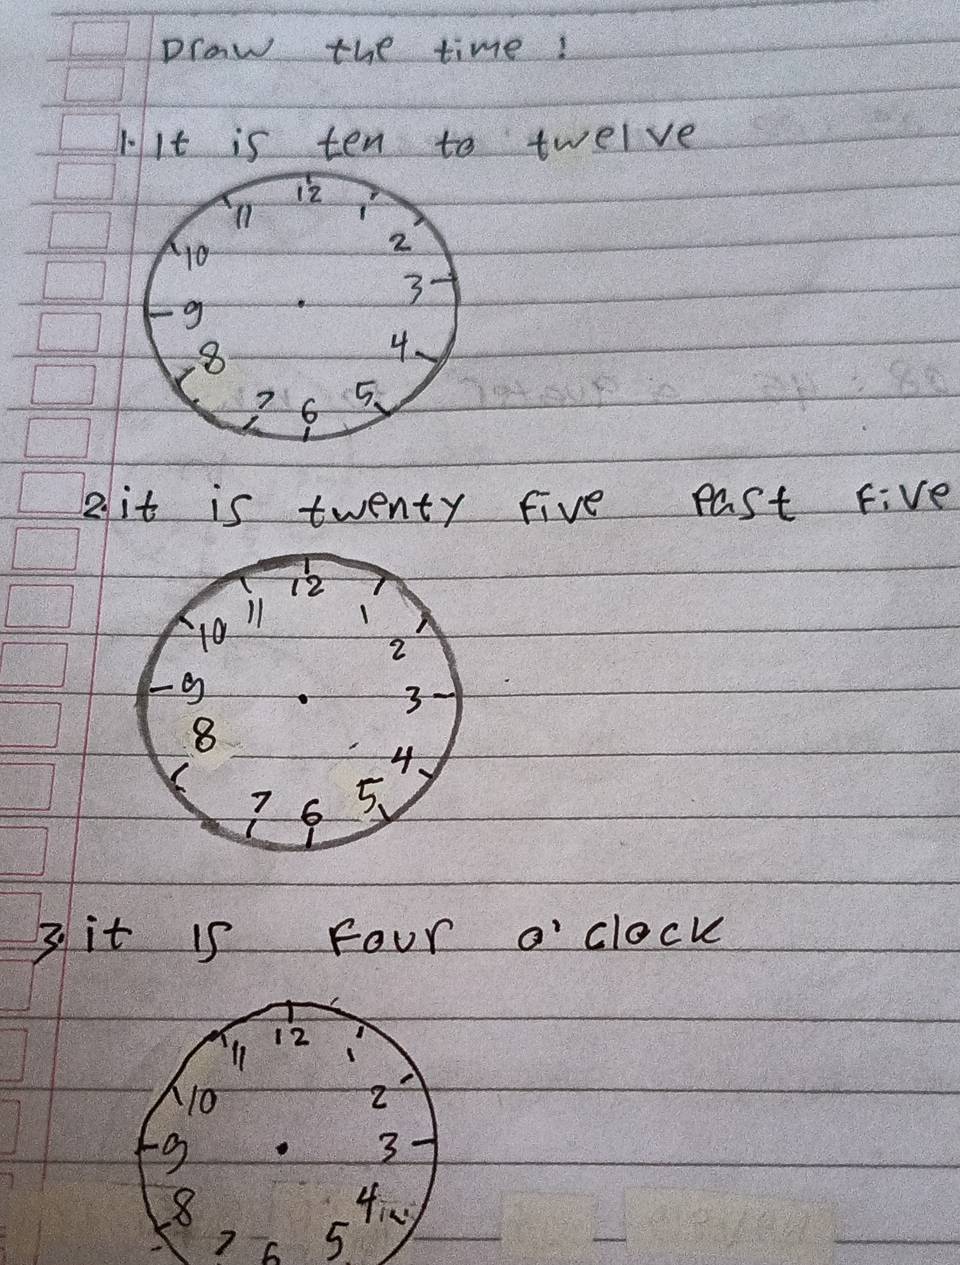 Draw the time !
1. It is ten to twelve
12
11 1
10 2
9 3
8 4
7 6 5
2. it is twenty five past five
12
11 1
10 2
9 3
8 4
7 6 5
3. it is four o'clock
12
11 1
10 2
9 3
8 4
7 6 5